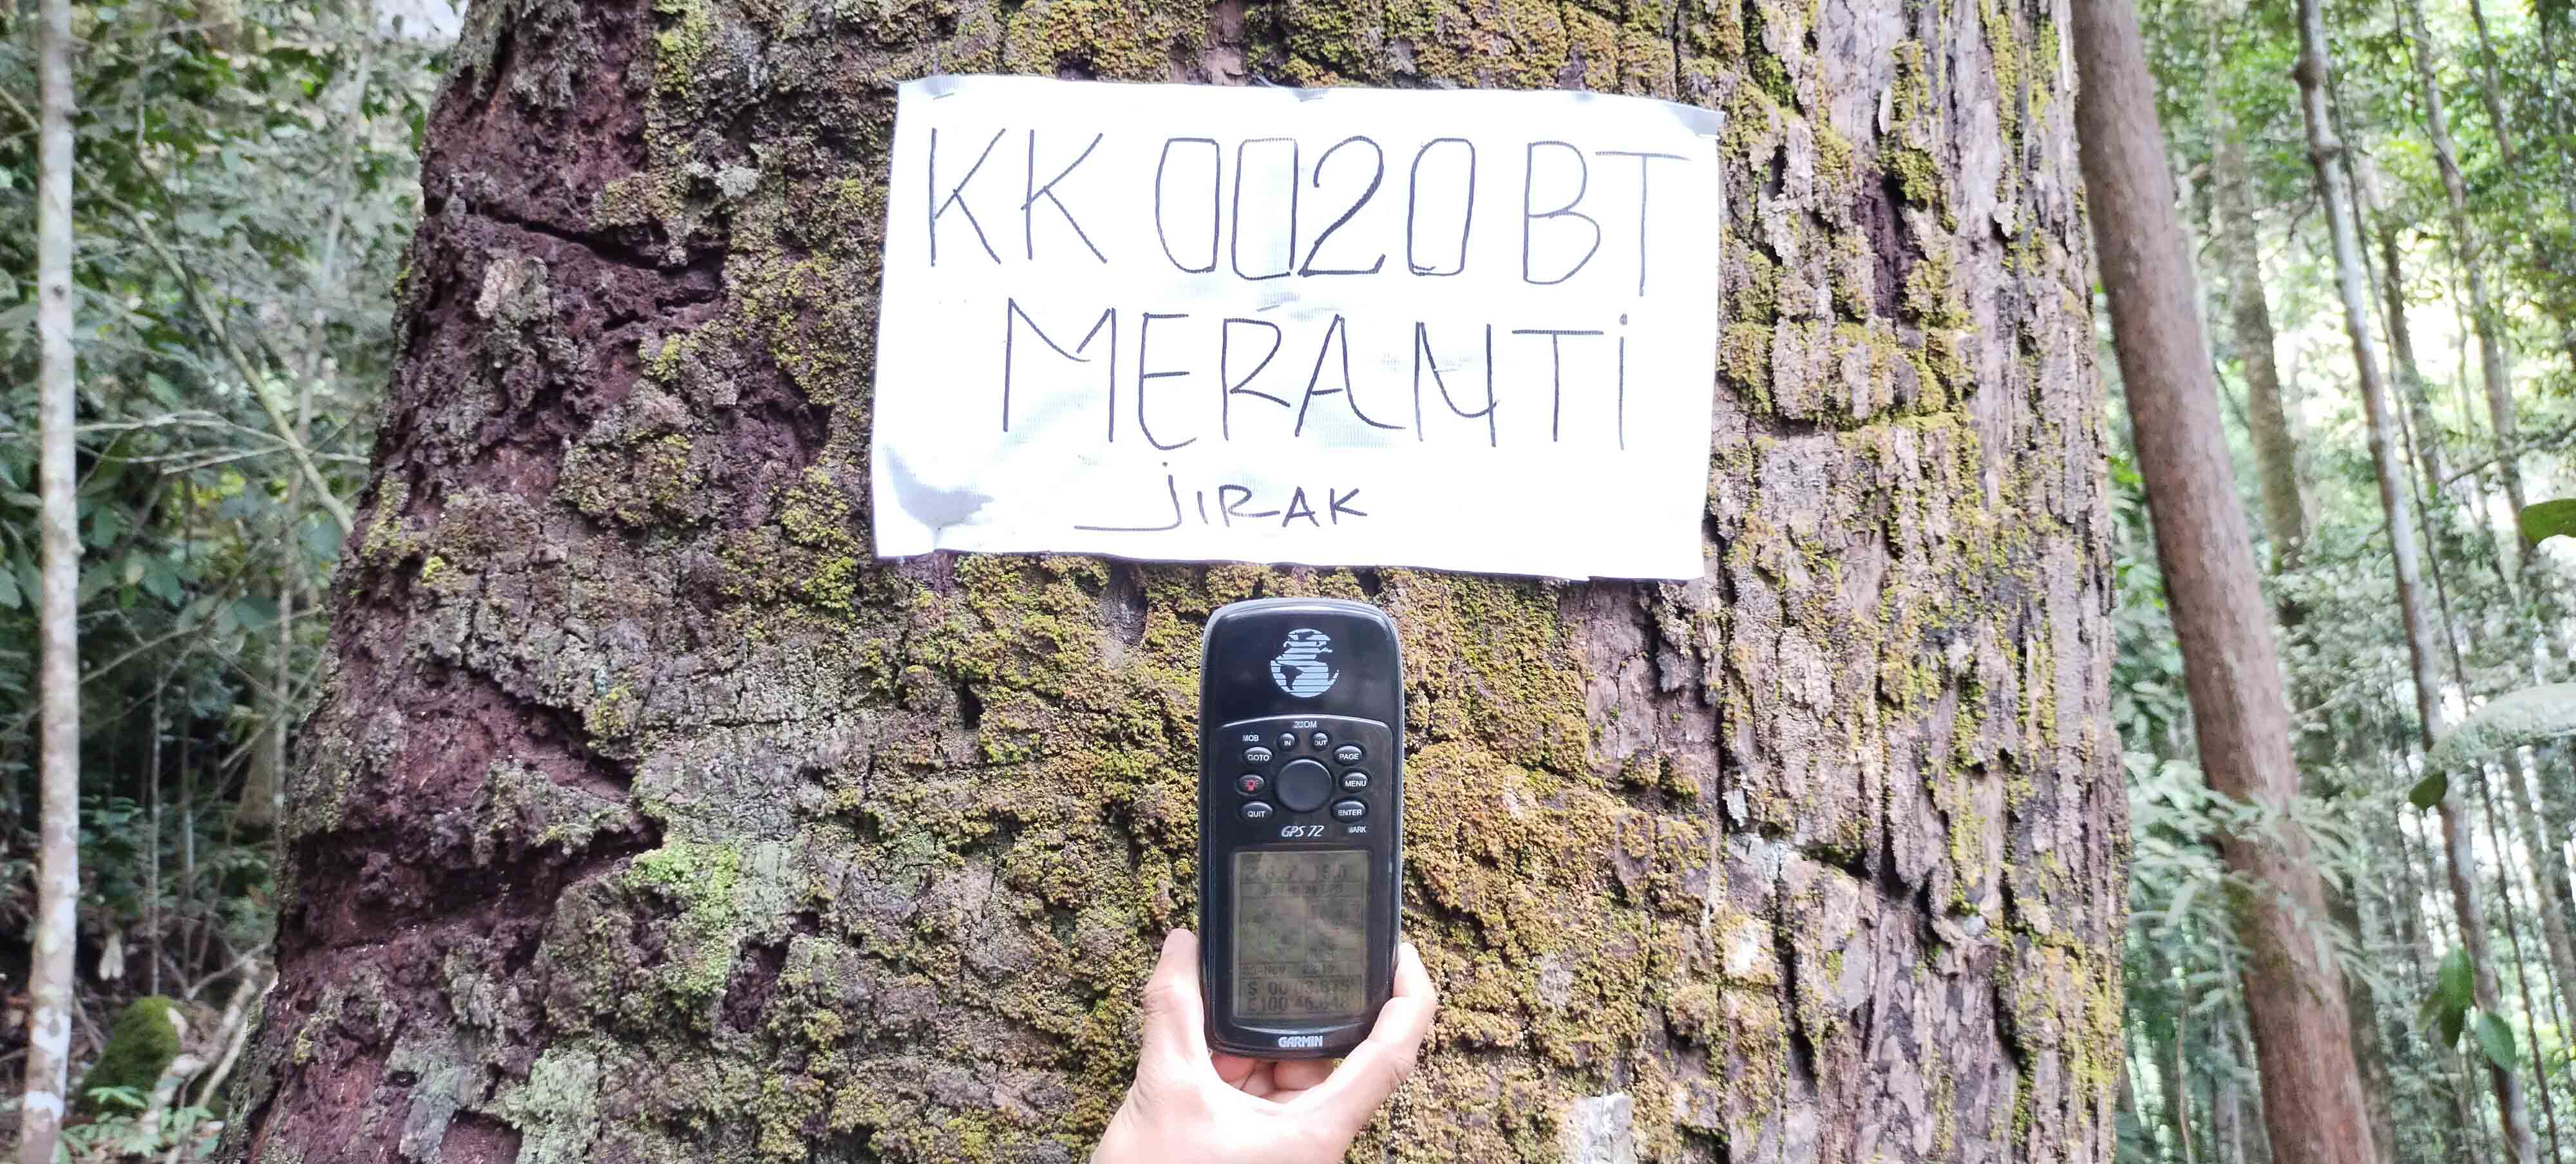 KK 0020 BT
MERANTi
JIRAK
ZOOM
MOB
IN
OUT
GOTO
PAGE
MENU
QUIT
ENTER
GPS 72
MARK
GARMIN